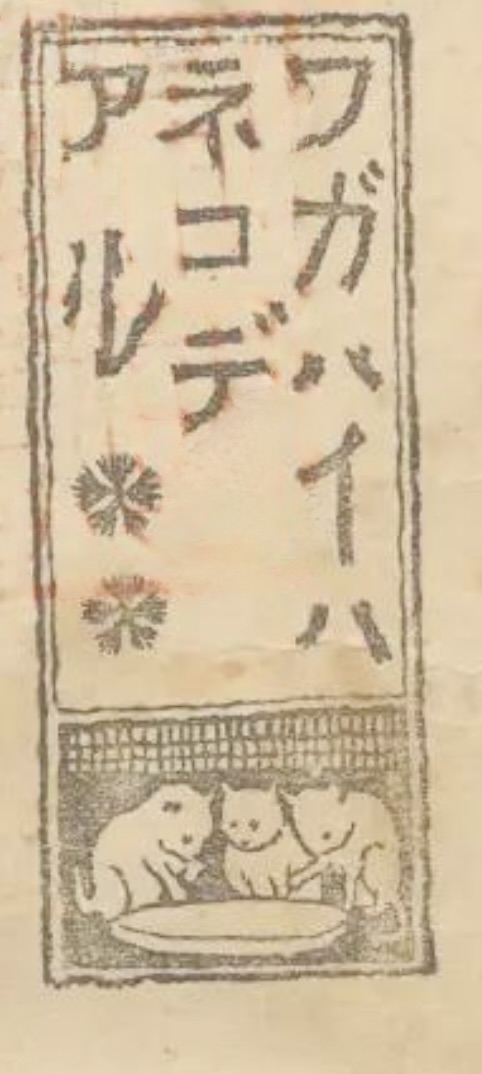 ワガハイハ
ネコデ
アル